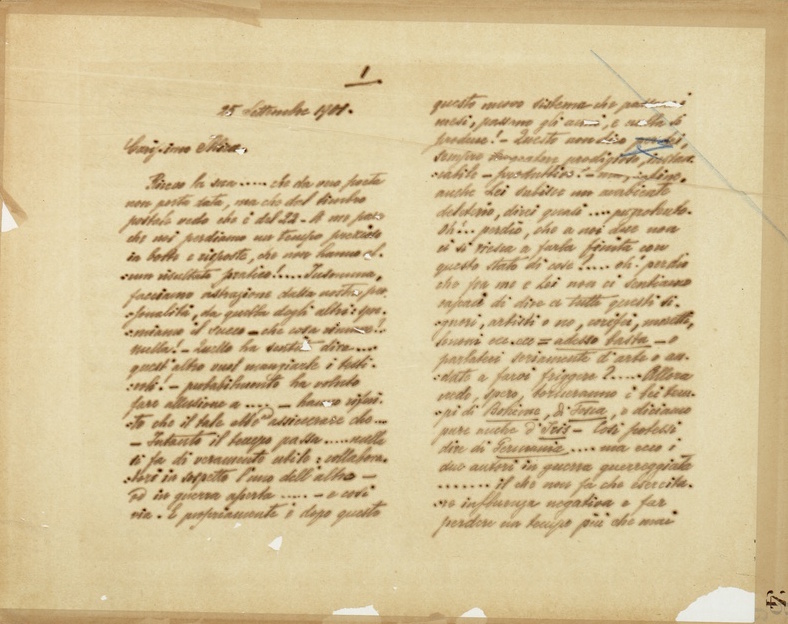 1
25 Settembre 1901.
Carissimo Illica,
Ricevo la sua .... che da una parte
non porta data, ma che dal timbro
postale vedo che è del 22 - A me pare
che noi perdiamo un tempo prezioso
in botte e risposte, che non hanno al-
cun risultato pratico!.... Insomma,
facciamo astrazione dalla nostra per-
sonalità, da quella degli altri: spre-
miamo il succo - che cosa rimane?.
nulla! - Quello ha sentito dire ....
quest'altro vuol mangiarle i testi-
coli! - probabilmente ha voluto
fare allusione a .... - hanno riferi-
to che il tale ebbe ad assicurare che...
- Intanto il tempo passa .... nulla
si fa di veramente utile: collabora-
tori in sospetto l'uno dell'altro -
od in guerra aperta .... - e così
via. E propriamente è dopo questo
questo nuovo sistema che passano i
mesi, passano gli anni, e nulla si
produce! - Questo non dico per lei,
sempre lavoratore prodigioso, instan-
cabile - produttivo! - ma, infine,
anche Lei subisce un ambiente
deleterio, direi quasi ....
Oh!... perdio, che a noi due non
ci si riesca a farla finita con
questo stato di cose?.... oh! perdio
che fra me e Lei non ci sentiamo
capaci di dire a tutti questi si-
gnori, artisti o no, corifei, maestri,
tenori ecc. ecc = adesso basta - o
parlateci seriamente di arte o an-
date a farvi friggere?.... Allora
vede, spero, torneranno i bei tem-
pi di Bohème, di Tosca, e diciamo
pure anche d'Iris - Così potessi
dire di Germania .... ma ecco i
due autori in guerra guerreggiata
....... il che non fa che esercita-
re influenza negativa e far
perdere un tempo più che mai